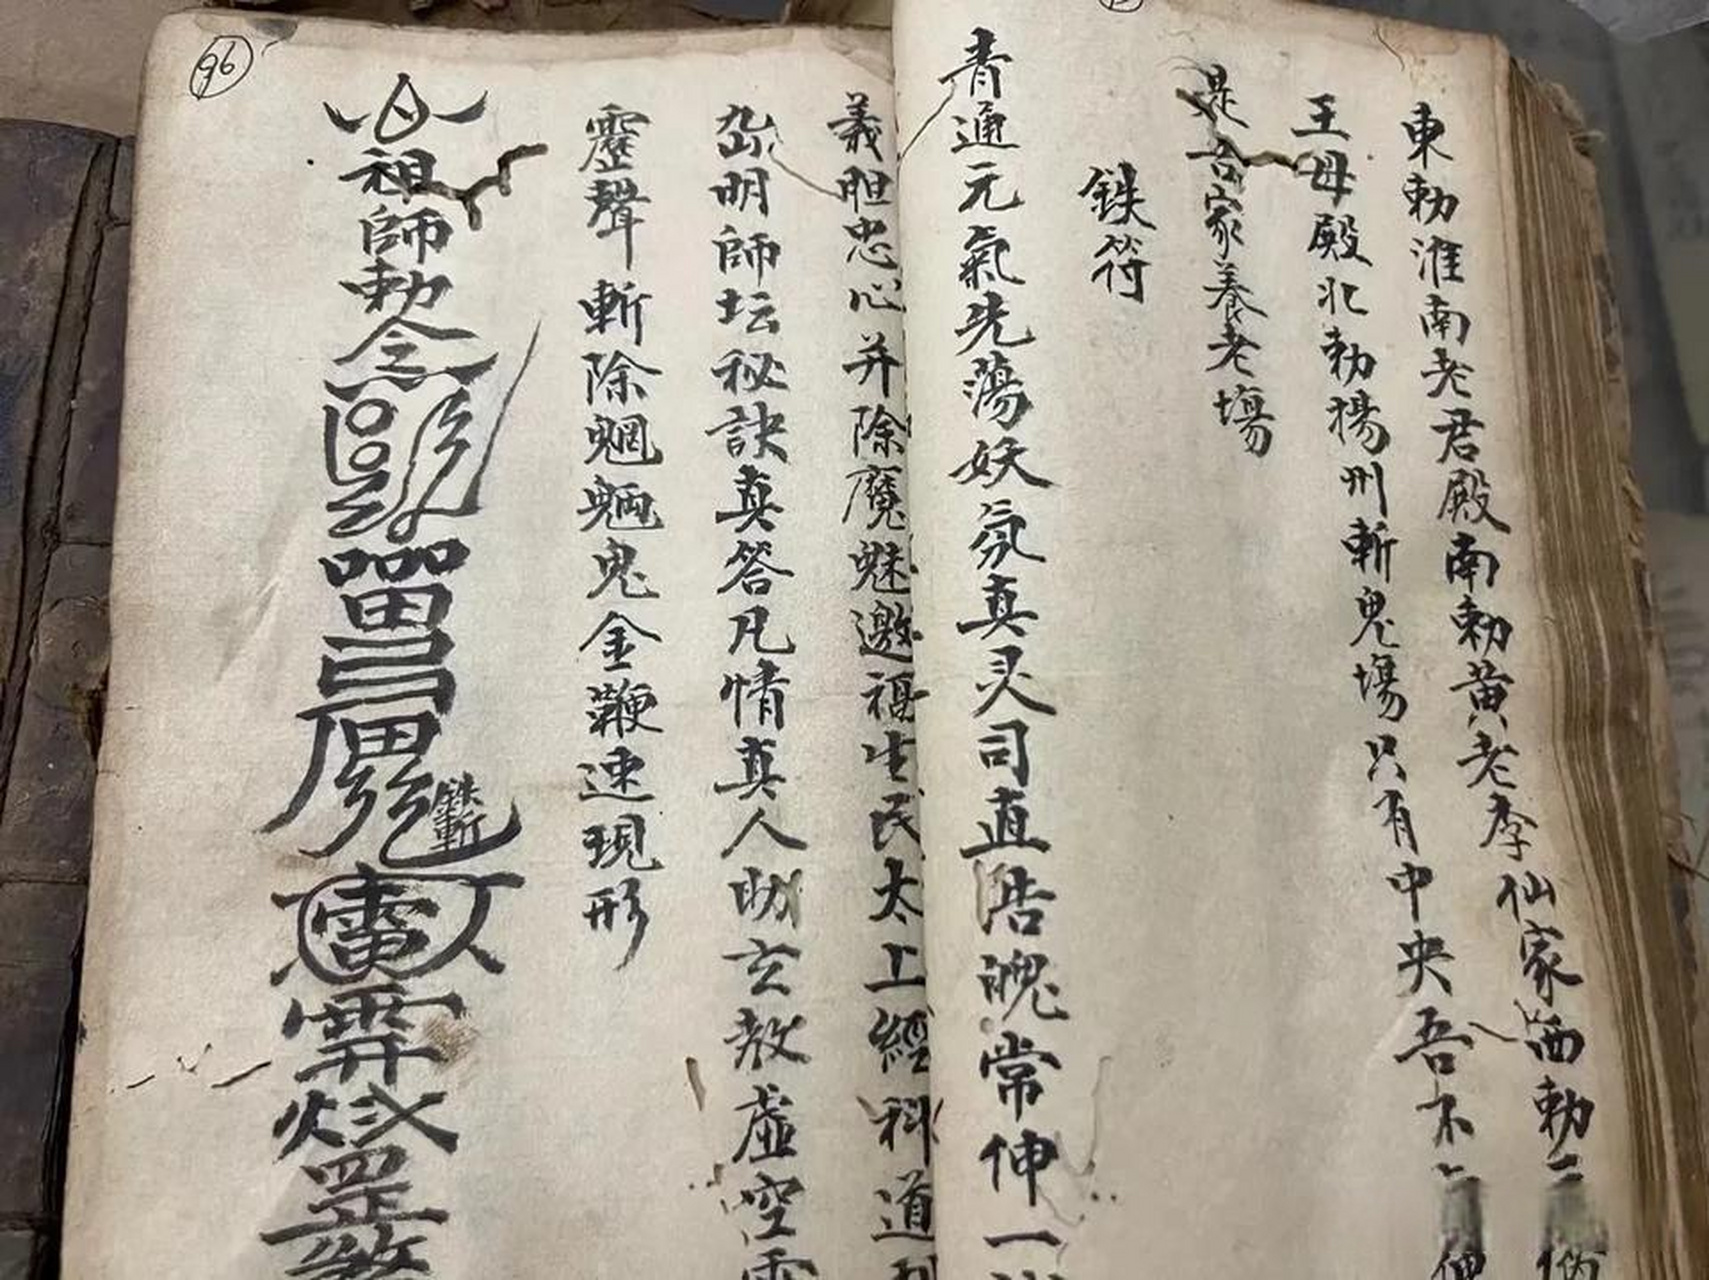 96
東勅淮南老君殿南勅黄老李仙家西勅二
王母殿北勅揚州斬鬼塲只有中央吾不
是吾家養老塲
鉄符
青通元氣先蕩妖氛真灵司直浩魄常伸一
義胆忠心并除魔魅邀福生民太上經科道
明師坛秘訣真答凡情真人助玄教虚空
靈聲斬除魍魎鬼金鞭速現形
祖師勅令
鉄斬